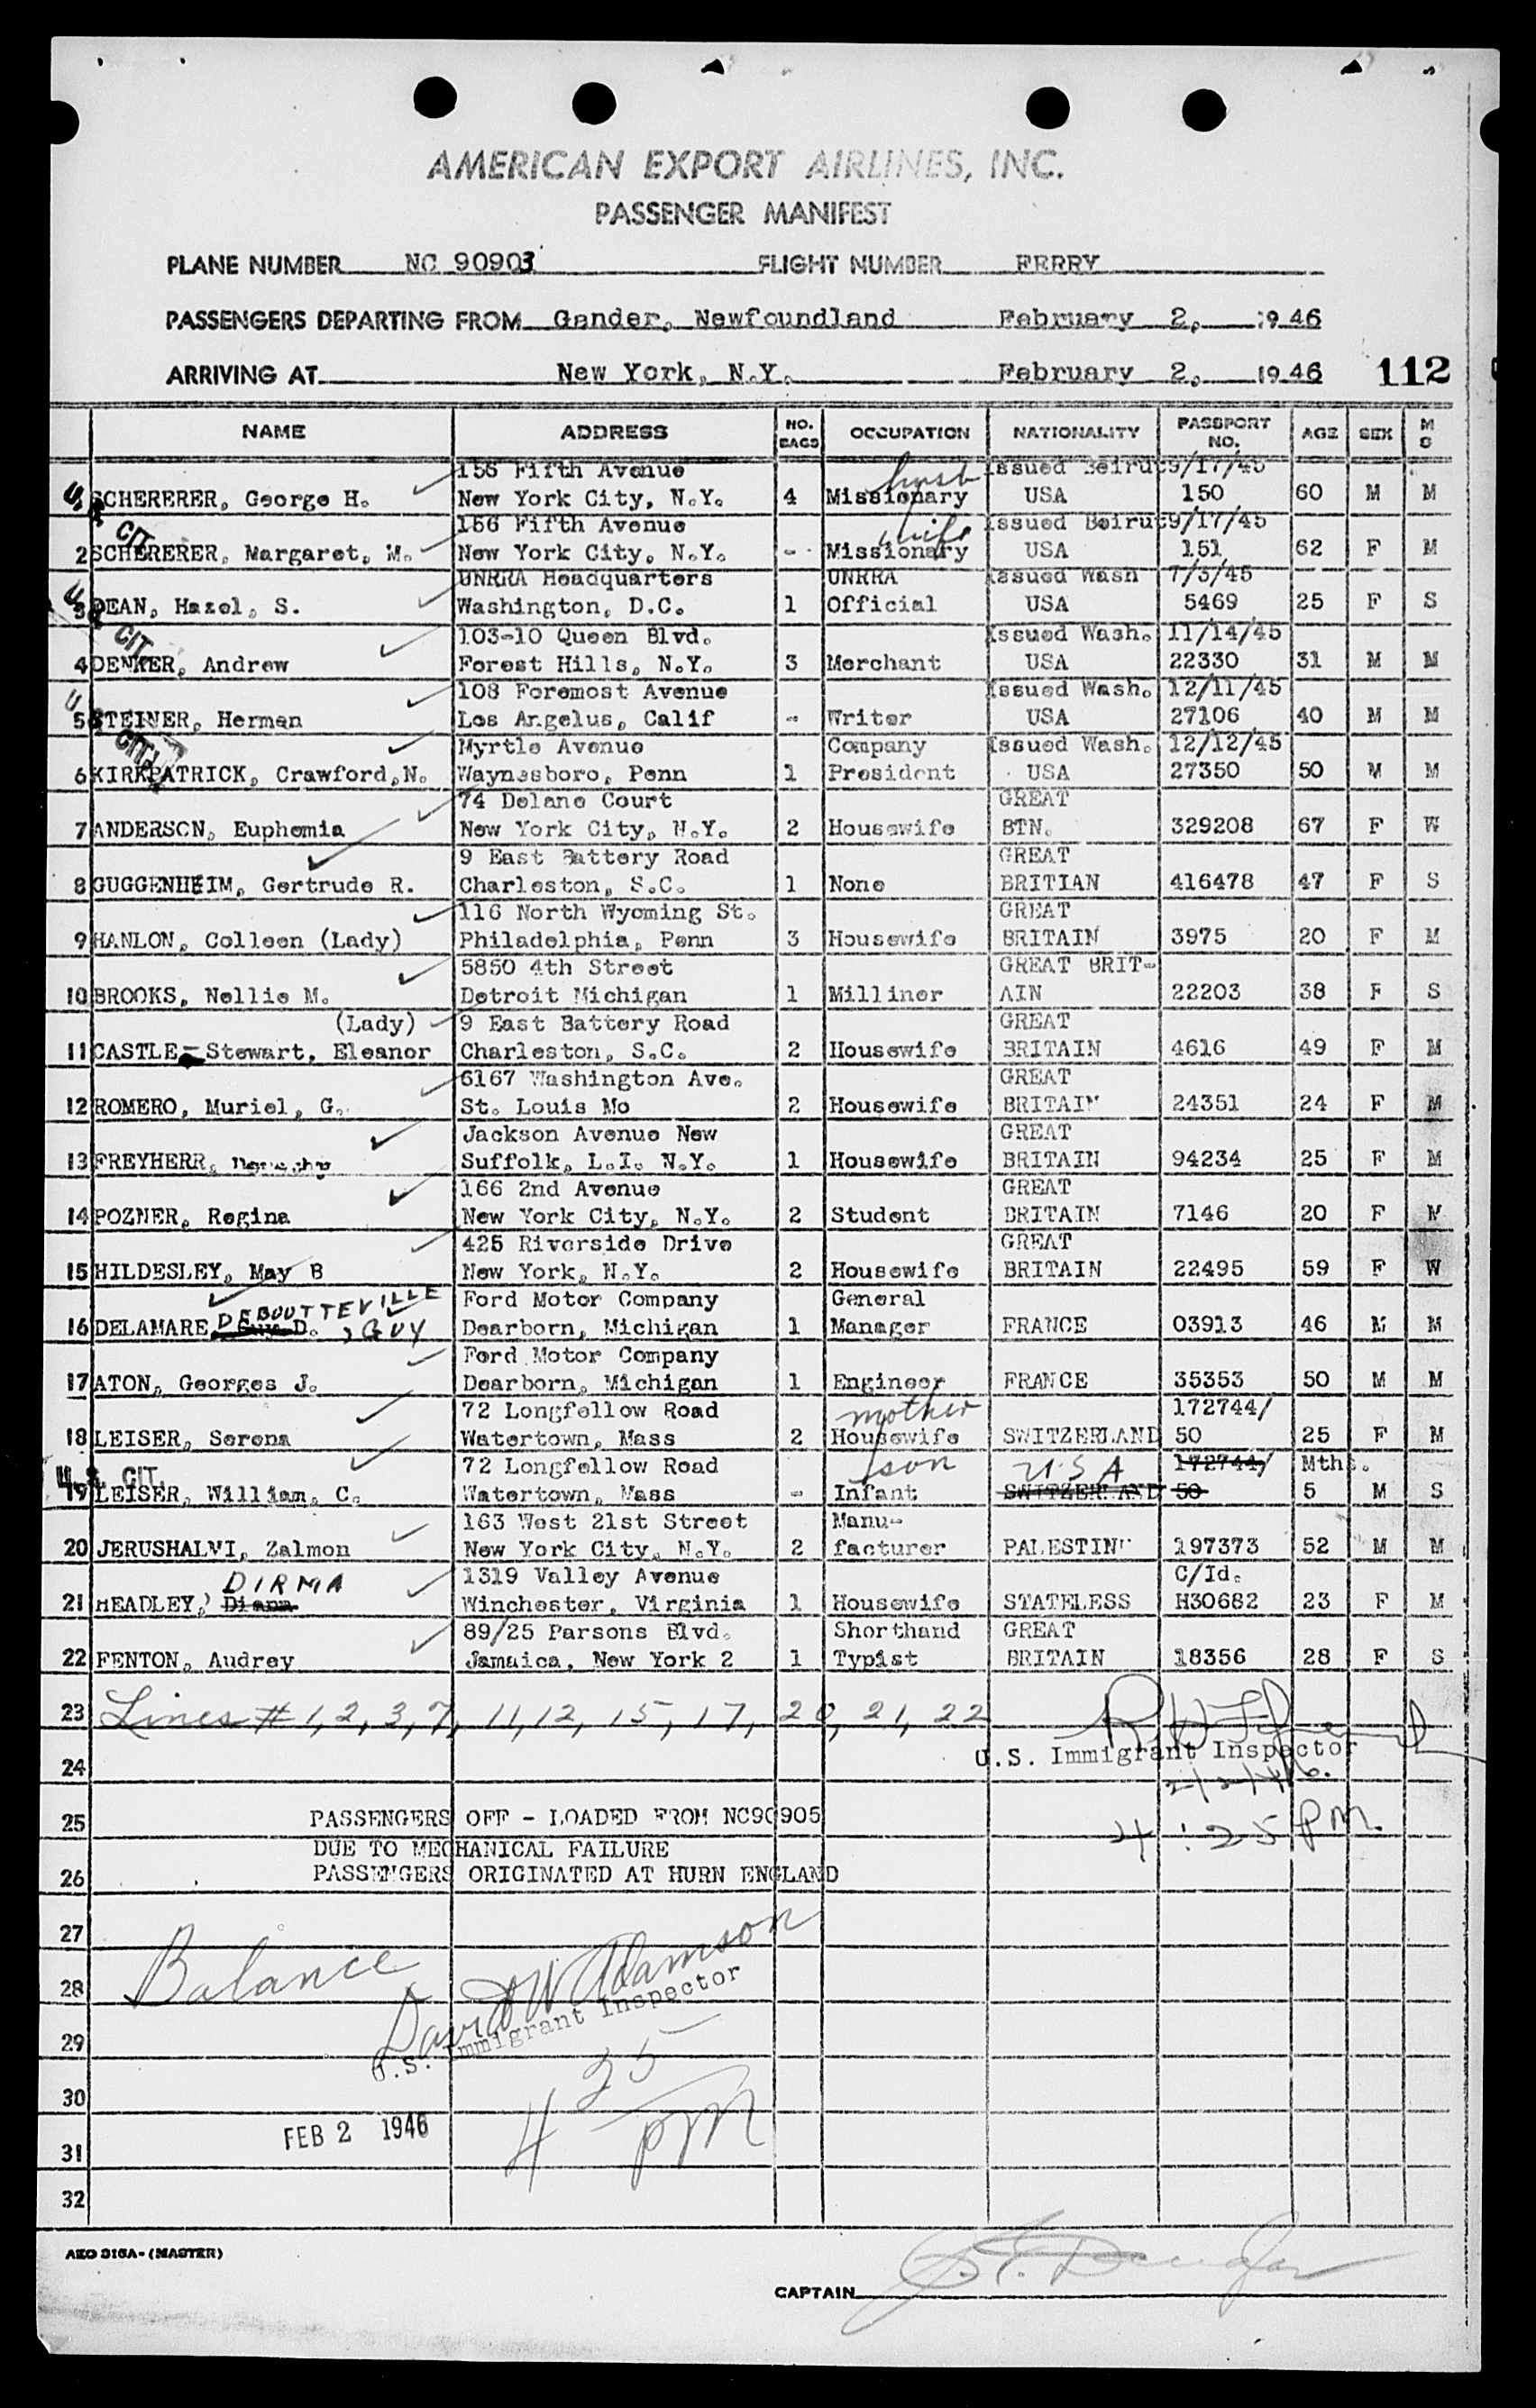 AMERICAN EXPORT AIRLINES, INC.
PASSENGER MANIFEST
PLANE NUMBER NC 90903 FLIGHT NUMBER FERRY
PASSENGERS DEPARTING FROM Gander, Newfoundland February 2, 1946
ARRIVING AT New York, N.Y. February 2, 1946 112
NAME ADDRESS NO. BAGS OCCUPATION NATIONALITY PASSPORT NO. AGE SEX M S
156 Fifth Avenue husb Issued Beirut 9/17/45
SCHERERER, George H. New York City, N.Y. 4 Missionary USA 150 60 M M
U.S. CIT.
156 Fifth Avenue wife Issued Beirut 9/17/45
2 SCHERERER, Margaret, M. New York City, N.Y. - Missionary USA 151 62 F M
UNRRA Headquarters UNRRA Issued Wash 7/3/45
3 DEAN, Hazel, S. Washington, D.C. 1 Official USA 5469 25 F S
U.S. CIT.
103-10 Queen Blvd. Issued Wash. 11/14/45
4 DENKER, Andrew Forest Hills, N.Y. 3 Merchant USA 22330 31 M M
108 Foremost Avenue Issued Wash. 12/11/45
5 STEINER, Herman Los Angelus, Calif - Writer USA 27106 40 M M
Myrtle Avenue Company Issued Wash. 12/12/45
6 KIRKPATRICK, Crawford,N. Waynesboro, Penn 1 President USA 27350 50 M M
74 Delane Court GREAT
7 ANDERSON, Euphemia New York City, N.Y. 2 Housewife BTN. 329208 67 F W
9 East Battery Road GREAT
8 GUGGENHEIM, Gertrude R. Charleston, S.C. 1 None BRITIAN 416478 47 F S
116 North Wyoming St. GREAT
9 HANLON, Colleen (Lady) Philadelphia, Penn 3 Housewife BRITAIN 3975 20 F M
5850 4th Street GREAT BRIT-
10 BROOKS, Nellie M. Detroit Michigan 1 Milliner AIN 22203 38 F S
(Lady) 9 East Battery Road GREAT
11 CASTLE-Stewart, Eleanor Charleston, S.C. 2 Housewife BRITAIN 4616 49 F M
6167 Washington Ave. GREAT
12 ROMERO, Muriel, G. St. Louis Mo 2 Housewife BRITAIN 24351 24 F M
Jackson Avenue New GREAT
13 FREYHERR, Suffolk, L.I. N.Y. 1 Housewife BRITAIN 94234 25 F M
166 2nd Avenue GREAT
14 POZNER, Regina New York City, N.Y. 2 Student BRITAIN 7146 20 F W
425 Riverside Drive GREAT
15 HILDESLEY, May B New York, N.Y. 2 Housewife BRITAIN 22495 59 F W
DEBOUTTEVILLE Ford Motor Company General
16 DELAMARE, Guy D. , GUY Dearborn, Michigan 1 Manager FRANCE 03913 46 M M
Ford Motor Company
17 ATON, Georges J. Dearborn, Michigan 1 Engineer FRANCE 35353 50 M M
72 Longfellow Road mother 172744/
18 LEISER, Serena Watertown, Mass 2 Housewife SWITZERLAND 50 25 F M
U.S. CIT. 72 Longfellow Road son USA 172744/ Mths.
19 LEISER, William, C. Watertown, Mass - Infant SWITZERLAND 50 5 M S
163 West 21st Street Manu-
20 JERUSHALMI, Zalmon New York City, N.Y. 2 facturer PALESTINE 197373 52 M M
DIRMA 1319 Valley Avenue C/Id.
21 HEADLEY, Diana Winchester, Virginia 1 Housewife STATELESS H30682 23 F M
89/25 Parsons Blvd. Shorthand GREAT
22 FENTON, Audrey Jamaica, New York 2 1 Typist BRITAIN 18356 28 F S
23 Lines # 1, 2, 3, 7, 11, 12, 15, 17, 20, 21, 22
U.S. Immigrant Inspector
24
2/2/46.
25 PASSENGERS OFF - LOADED FROM NC90905
4:25 PM.
DUE TO MECHANICAL FAILURE
26 PASSENGERS ORIGINATED AT HURN ENGLAND
27
28 Balance David W Adamson
U.S. Immigrant Inspector
29
30 4 35 PM
FEB 2 1946
31
32
AEO 316A-(MASTER)
CAPTAIN